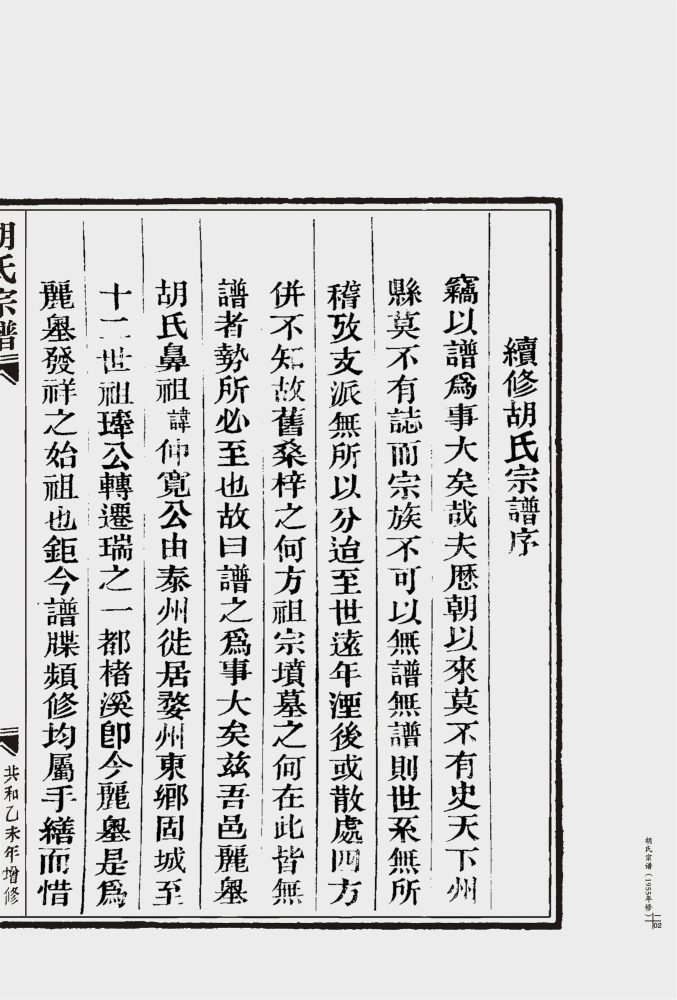 續修胡氏宗譜序
竊以譜爲事大矣哉夫歷朝以來莫不有史天下州
縣莫不有誌而宗族不可以無譜無譜則世系無所
稽攷支派無所以分迨至世遠年湮後或散處四方
併不知故舊桑梓之何方祖宗墳墓之何在此皆無
譜者勢所必至也故曰譜之爲事大矣茲吾邑麗㙯
胡氏鼻祖諱仲寬公由泰州徙居婺州東鄉固城至
十二世祖瑋公轉遷瑞之一都楮溪卽今麗㙯是爲
麗㙯發祥之始祖也鉅今譜牒頻修均屬手繕而惜
胡氏宗譜
共和乙未年增修
胡氏宗谱（1955年修）
二
02